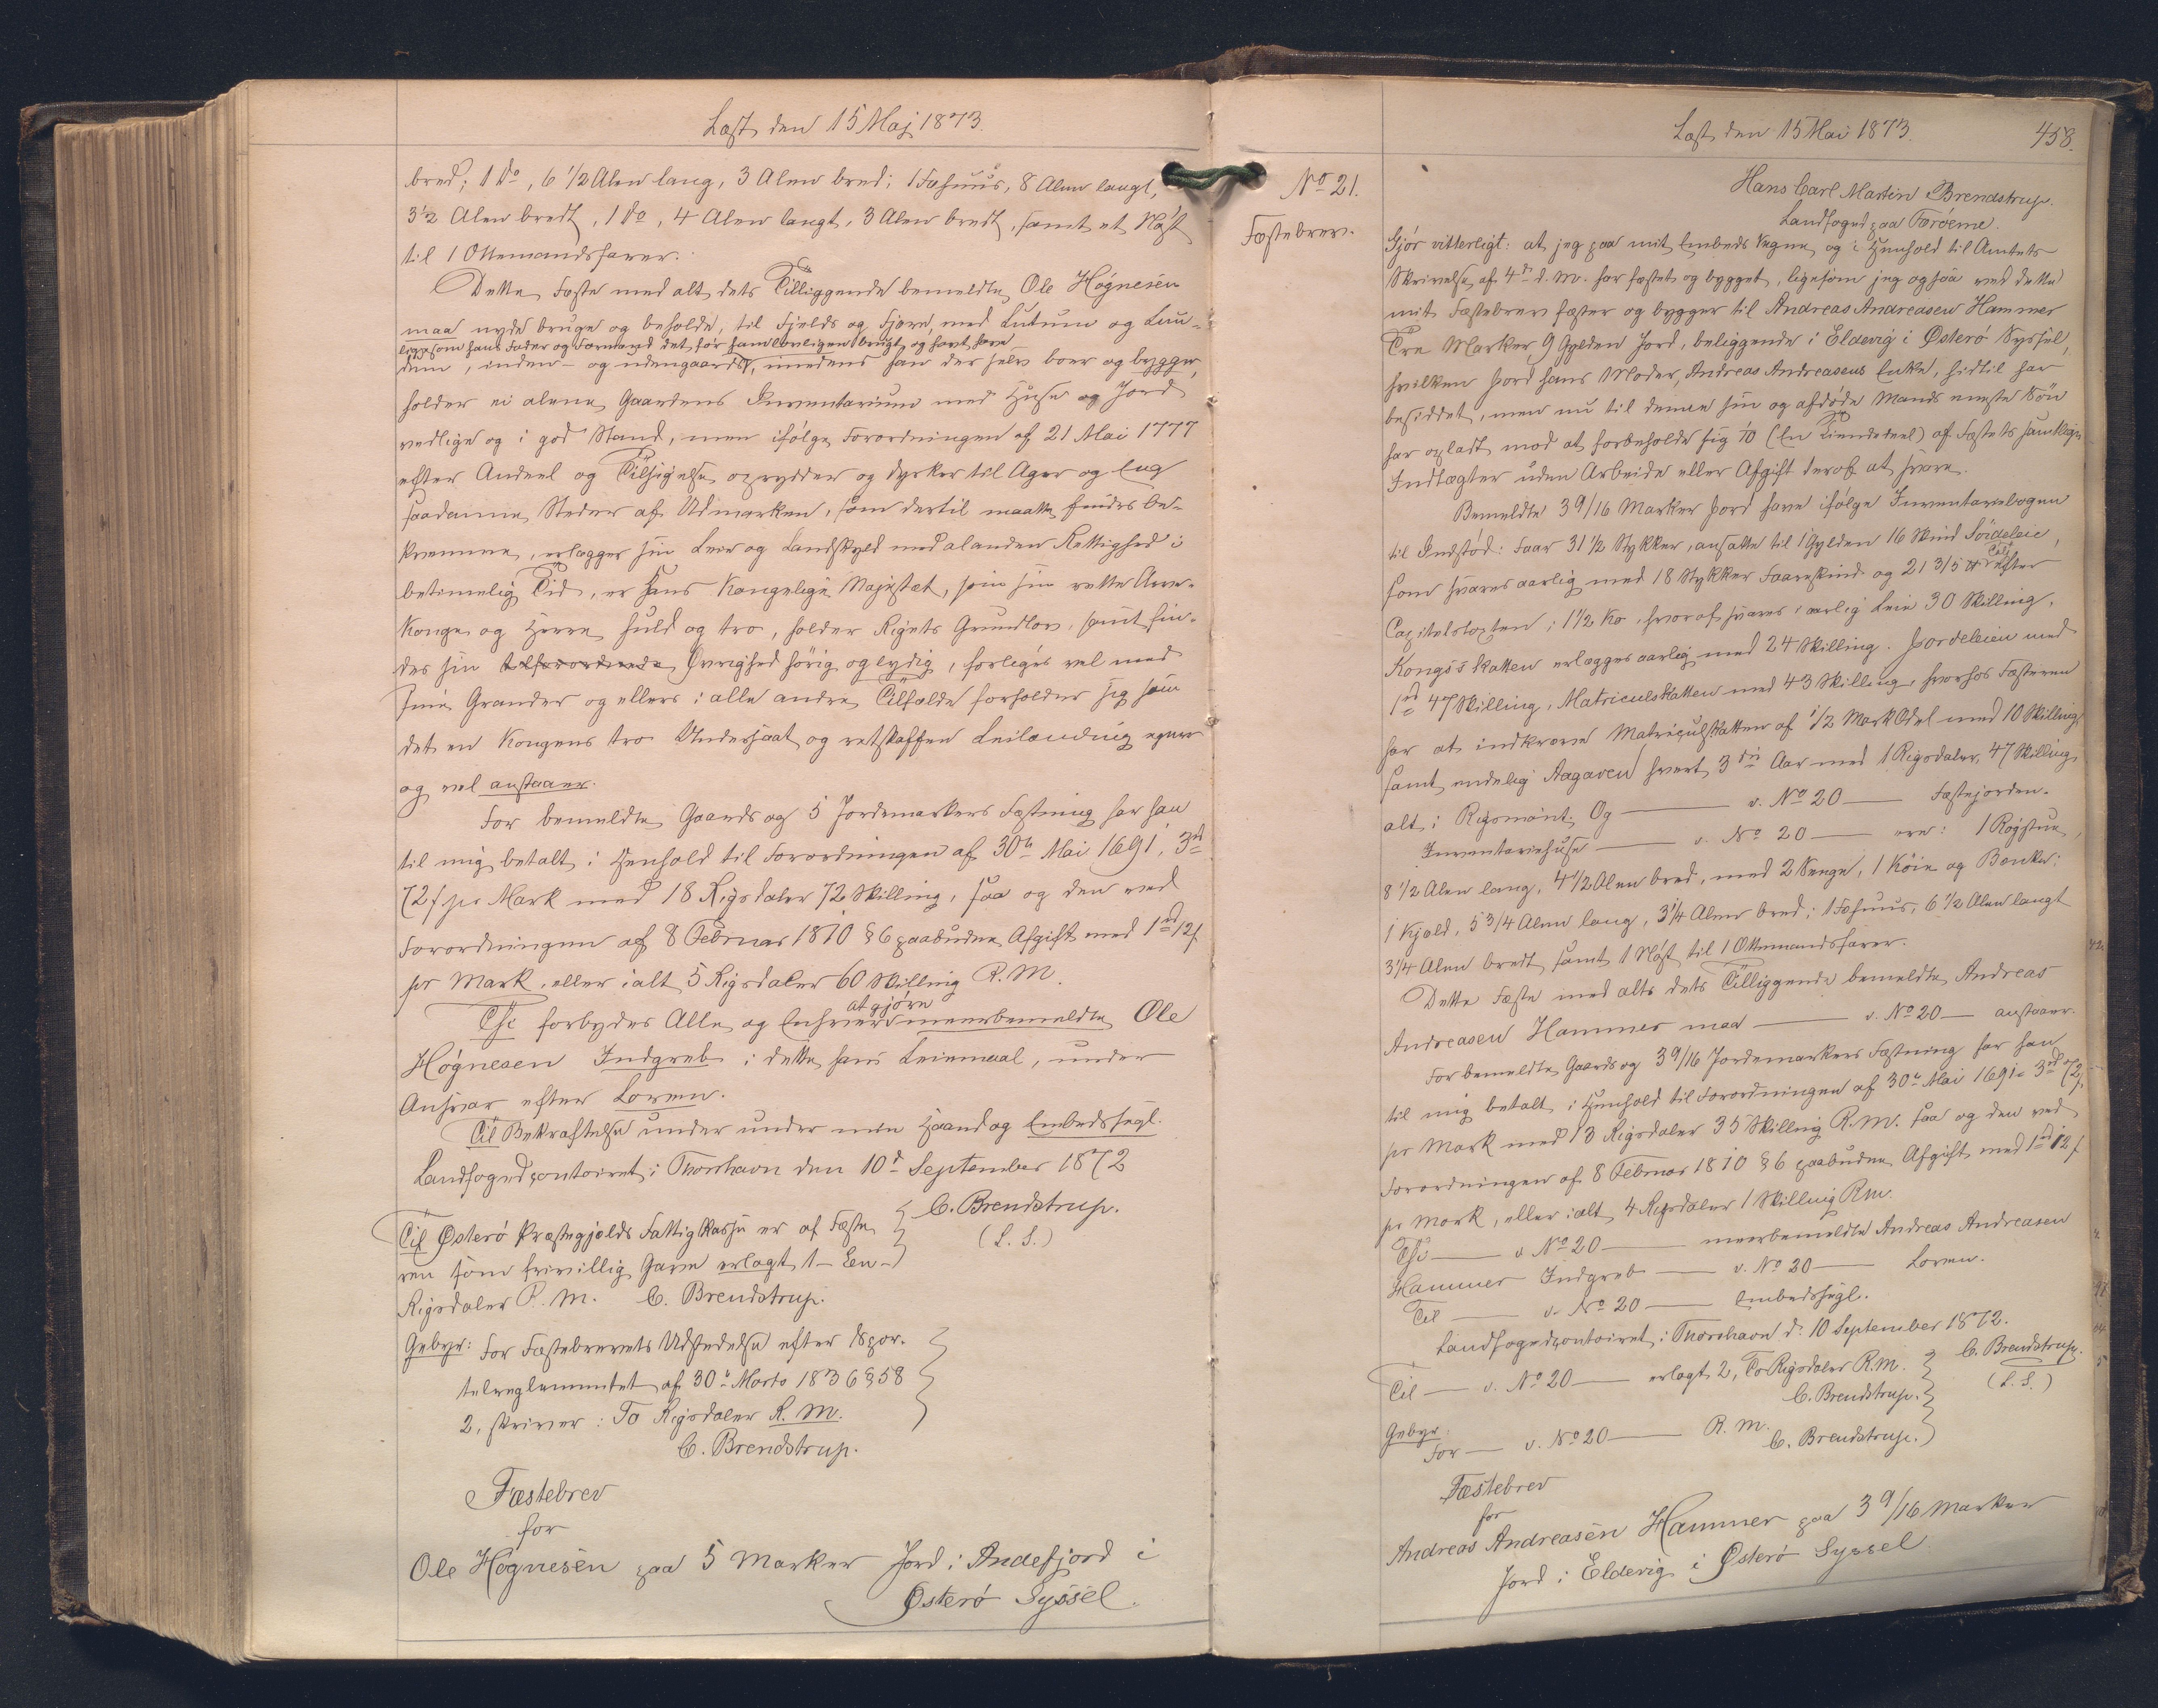 Læst den 15 Maj 1873.
bred; 1 do, 6 1/2 Alen lang, 3 Alen bred; 1 Fæhuus, 8 Alen langt,
3 1/2 Alen bredt, 1 do, 4 Alen langt, 3 Alen bredt, samt et Nøst
til 1 Ottemandsfarer.
Dette Fæste med alt dets Tilliggende bemeldte Ole Høgnesen
maa nyde bruge og beholde, til Fjelds og Fjære, med Lutum og Lun-
ligesom hans Fader og Formænd det før har lovligen brugt og havt have
dum, inden- og udengaards, imedens han der selv boer og bygger,
holder ei alene Gaardens Inventarium med Huse og Jord
vedlige og i god Stand, men ifølge Forordningen af 21 Mai 1777
efter Andeel og Tilsigelse oprydder og dyrker til Ager og Eng
saadanne Steder af Udmarken, som dertil maatte findes be-
kvemme, erlægger sin Leie og Landskyld med alanden Rettighed i
betimelig Tid, er Hans Kongelige Majestæt, som sin rette Arve-
Konge og Herre huld og tro, holder Rigets Grundlov, samt fin-
des sin tilforordnede Øvrighed hørig og lydig, forliges vel med
sine Grander og ellers i alle andre Tilfælde forholder sig som
det en Kongens tro Undersaat og retskaffen Leilænding egner
og vel anstaaer.
For bemeldte Gaards og 5 Jordemarkers Fæstning har han
til mig betalt i Henhold til Forordningen af 30te Mai 1691, 3rd
72 s pr Mark med 18 Rigsdaler 72 Skilling, saa og den ved
Forordningen af 8 Februar 1810 § 6 paabudne Afgift med 1rd 12 s
pr Mark, eller ialt 5 Rigsdaler 60 Skilling R. M.
at gjøre
Thi forbydes Alle og Enhver meerbemeldte Ole
Høgnesen Indgreb i dette hans Leiemaal, under
Ansvar efter Loven.
Til Bekræftelse under under min Haand og Embedssegl.
Landfogedcontoiret i Thorshavn den 10de September 1872
C. Brendstrup.
(L. S.)
Til Østerø Præstegjælds Fattigkasse er af Fæste
ren som frivillig Gave erlagt 1 - En -
Rigsdaler R. M. C. Brendstrup.
Gebyr: For Fæstebrevets Udstedelse efter Spor-
telreglementet af 30te Marts 1836 § 58
2, skriver: To Rigsdaler R. M.
C. Brendstrup.
Fæstebrev
for
Ole Høgnesen paa 5 Marker Jord i Andefjord i
Østerø Syssel.
Læst den 15 Mai 1873.
458.
No 21.
Fæstebrev.
Hans Carl Martin Brendstrup.
Landfoged paa Færöerne.
Gjør vitterligt: at jeg paa mit Embeds Vegne og i Henhold til Amtets
Skrivelse af 4de d. M. har fæstet og bygget, ligesom jeg ogsaa ved dette
mit Fæstebrev fæster og bygger til Andreas Andreasen Hammer
Tre Marker 9 Gylden Jord, beliggende i Eldevig i Østerø Syssel,
hvilken Jord hans Moder, Andreas Andreasens Enke, hidtil har
besiddet, men nu til denne sin og afdøde Mands eneste Søn
har opladt mod at forbeholde sig 1/10 (En Tiendedeel) af Fæstets samtlige
Indtægter uden Arbeide eller Afgift deraf at svare.
Bemeldte 3 9/16 Marker Jord have ifølge Inventariebogen
til Indstød: Faar 31 1/2 Stykker, ansatte til 1 Gylden 16 Skind Söideleie,
som svares aarlig med 18 Stykker Faareskind og 21 3/5 ℔ Talg efter
Capitelstaxten; 1 1/2 Ko, hvoraf svares i aarlig Leie 30 Skilling.
Kongsskatten erlægges aarlig med 24 Skilling. Jordeleien med
1rd 47 Skilling, Matriculskatten med 43 Skilling, hvorhos Fæsteren
har at indkræve Matriculskatten af 1/2 Mark Odel med 10 Skilling,
samt endelig Aagaven hvert 3die Aar med 1 Rigsdaler, 47 Skilling
alt i Rigsmønt. Og — v. No 20 — Fæstejorden.
Inventariehuse — v. No 20 — ere: 1 Røgstue,
8 1/2 Alen lang, 4 1/2 Alen bred, med 2 Senge, 1 Køie og Bænke;
1 Kjeld, 5 3/4 Alen lang, 3 1/4 Alen bred; 1 Fæhuus, 6 1/2 Alen langt
3 1/4 Alen bredt samt 1 Nøst til 1 Ottemandsfarer.
Dette Fæste med alts dets Tilliggende bemeldte Andreas
Andreasen Hammer maa — v. No 20 — anstaaer.
For bemeldte Gaards og 3 9/16 Jordemarkers Fæstning har han
til mig betalt i Henhold til Forordningen af 30te Mai 1691 3rd 72 s
pr Mark med 13 Rigsdaler 35 Skilling R. M. saa og den ved
Forordningen af 8 Februar 1810 § 6 paabudne Afgift med 1rd 12 s
pr Mark, eller ialt 4 Rigsdaler 1 Skilling Rm.
Thi — v. No 20 — meerbemeldte Andreas Andreasen
Hammer Indgreb — v. No 20 — Loven.
Til — v. No 20 — Embedssegl.
Landfogedcontoiret i Thorshavn d. 10 September 1872.
C. Brendstrup.
(L. S.)
Til — v. No 20 — erlagt 2, To Rigsdaler R. M.
C. Brendstrup.
Gebyr:
For — v. No 20 — R. M.
C. Brendstrup.
Fæstebrev
for
Andreas Andreasen Hammer paa 3 9/16 Marker
Jord i Eldevig i Østerø Syssel